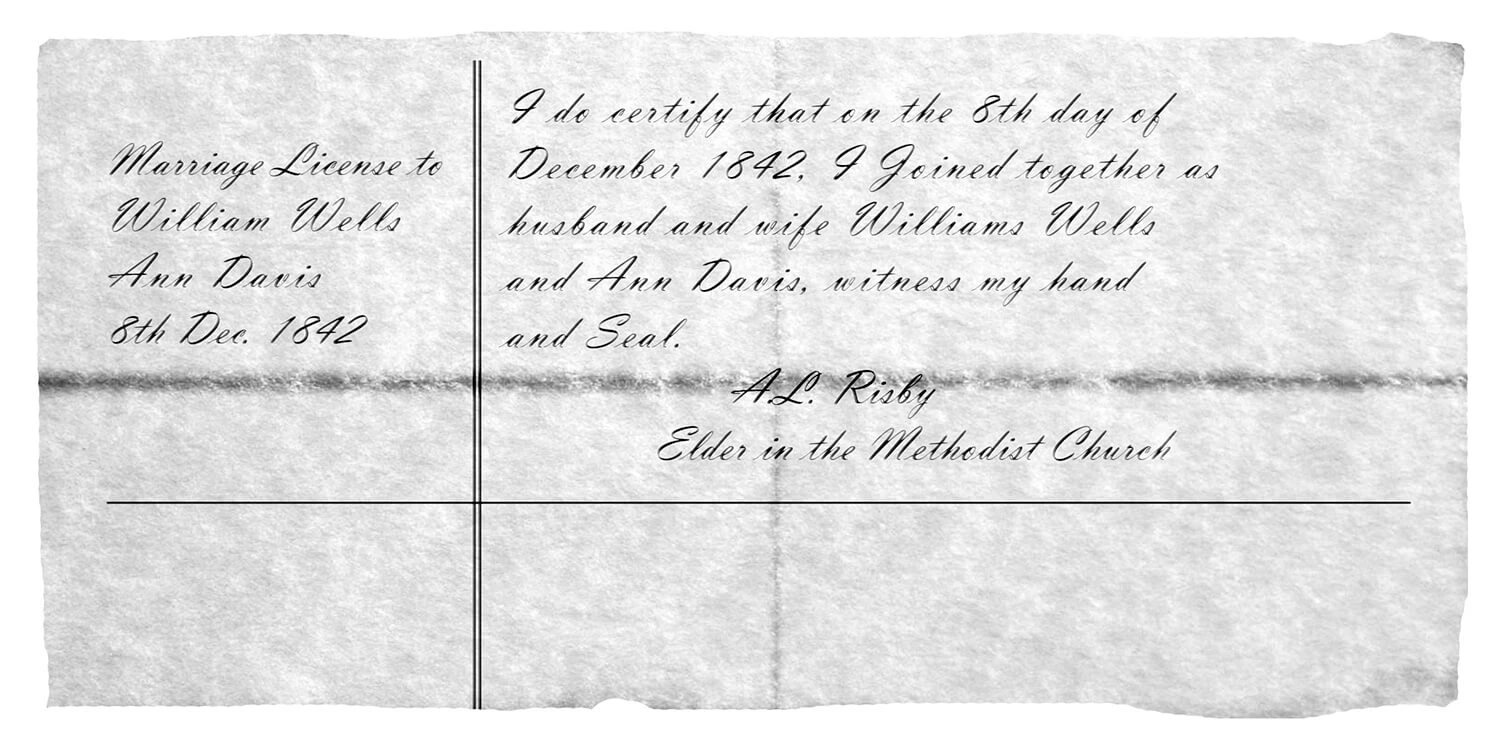 Marriage License to
William Wells
Ann Davis
8th Dec. 1842
I do certify that on the 8th day of
December 1842, I Joined together as
husband and wife Williams Wells
and Ann Davis, witness my hand
and Seal.
A.L. Risby
Elder in the Methodist Church